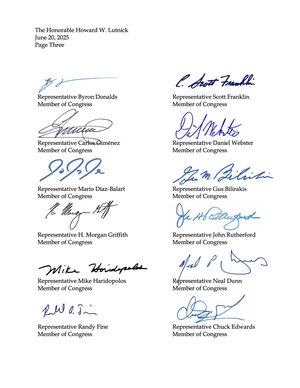 The Honorable Howard W. Lutnick
June 20, 2025
Page Three
C. Scott Franklin
Representative Byron Donalds
Member of Congress
Representative Scott Franklin
Member of Congress
Representative Carlos Gimenez
Member of Congress
Representative Daniel Webster
Member of Congress
Gus M. Bilirakis
Representative Mario Diaz-Balart
Member of Congress
Representative Gus Bilirakis
Member of Congress
Representative H. Morgan Griffith
Member of Congress
Representative John Rutherford
Member of Congress
Mike Haridopolos
Representative Mike Haridopolos
Member of Congress
Representative Neal Dunn
Member of Congress
Representative Randy Fine
Member of Congress
Representative Chuck Edwards
Member of Congress